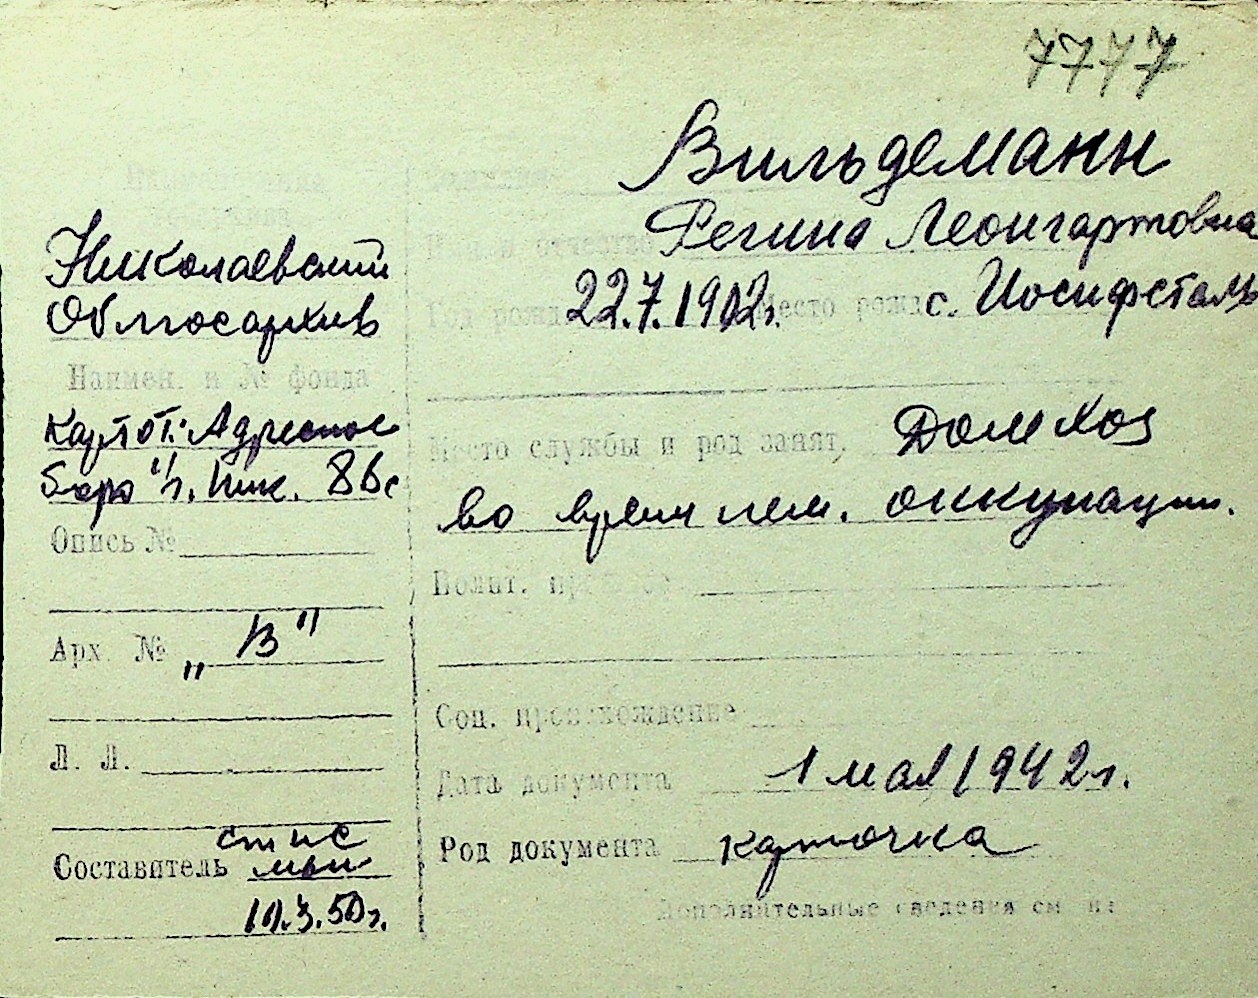 7777
Вильдеманн
Имя и отчество Регина Леонгартовна
Год рожд. 22.7.1902г. Место рожд. с. Иосифсталь
Место службы и род занят. Домхоз
во время нем. оккупации.
Полит.
Соц. происхождение
Дата документа 1 мая 1942г.
Род документа карточка
Дополнительные сведения см на
Николаевский
Облгосархив
Наимен. и № фонда
Картот. Адресное
бюро г. Ник.
Опись №
Арх. № „В"
Л. Л.
Составитель
10.3.50г.